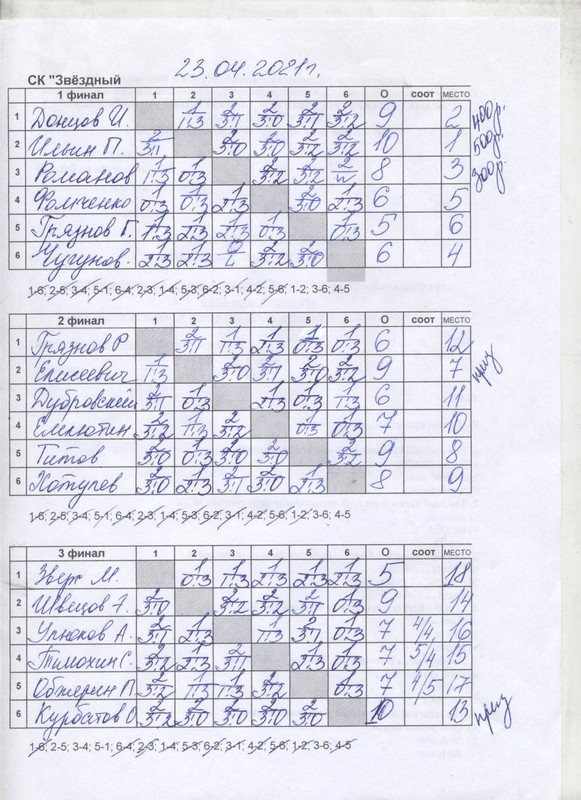 23.04.2021г.
СК "Звёздный
1 финал 1 2 3 4 5 6 О соот МЕСТО
1 Донцов И. 1 1:3 2 3:1 2 3:0 2 3:1 2 3:2 9 2 400р.
2 Ильин П. 2 3:1 2 3:0 2 3:0 2 3:2 2 3:2 10 1 500р.
3 Романов 1 1:3 1 0:3 2 3:2 2 3:2 2 w 8 3 300р.
4 Фомченко 1 0:3 1 0:3 1 2:3 2 3:0 1 2:3 6 5
5 Грязнов Г. 1 1:3 1 2:3 1 2:3 1 0:3 1 0:3 5 6
6 Чугунов. 1 2:3 1 2:3 0 L 2 3:2 2 3:0 6 4
1-6; 2-5; 3-4; 5-1; 6-4; 2-3; 1-4; 5-3; 6-2; 3-1; 4-2; 5-6; 1-2; 3-6; 4-5
2 финал 1 2 3 4 5 6 О соот МЕСТО
1 Грязнов Р 2 3:1 1 1:3 1 2:3 1 0:3 1 0:3 6 12
2 Елисеевич 1 1:3 2 3:0 2 3:1 2 3:0 2 3:2 9 7 приз
3 Дубровский 2 3:1 1 0:3 1 2:3 1 0:3 1 1:3 6 11
4 Емлютин 2 3:2 1 1:3 2 3:2 1 0:3 1 0:3 7 10
5 Титов 2 3:0 1 0:3 2 3:0 2 3:0 2 3:2 9 8
6 Хотулев 2 3:0 1 2:3 2 3:1 2 3:0 1 2:3 8 9
1-6; 2-5; 3-4; 5-1; 6-4; 2-3; 1-4; 5-3; 6-2; 3-1; 4-2; 5-6; 1-2; 3-6; 4-5
3 финал 1 2 3 4 5 6 О соот МЕСТО
1 Зверг М. 1 0:3 1 1:3 1 2:3 1 2:3 1 2:3 5 18
2 Швецов А. 2 3:0 2 3:2 2 3:2 2 3:1 1 0:3 9 14
3 Упноков А. 2 3:1 1 2:3 1 1:3 2 3:1 1 0:3 7 4/4 16
4 Тимохин С. 2 3:2 1 2:3 2 3:1 1 2:3 1 0:3 7 5/4 15
5 2 3:2 1 1:3 1 1:3 2 3:2 1 0:3 7 4/5 17
6 Курбатов О 2 3:2 2 3:0 2 3:0 2 3:0 2 3:0 10 13 приз
1-6; 2-5; 3-4; 5-1; 6-4; 2-3; 1-4; 5-3; 6-2; 3-1; 4-2; 5-6; 1-2; 3-6; 4-5